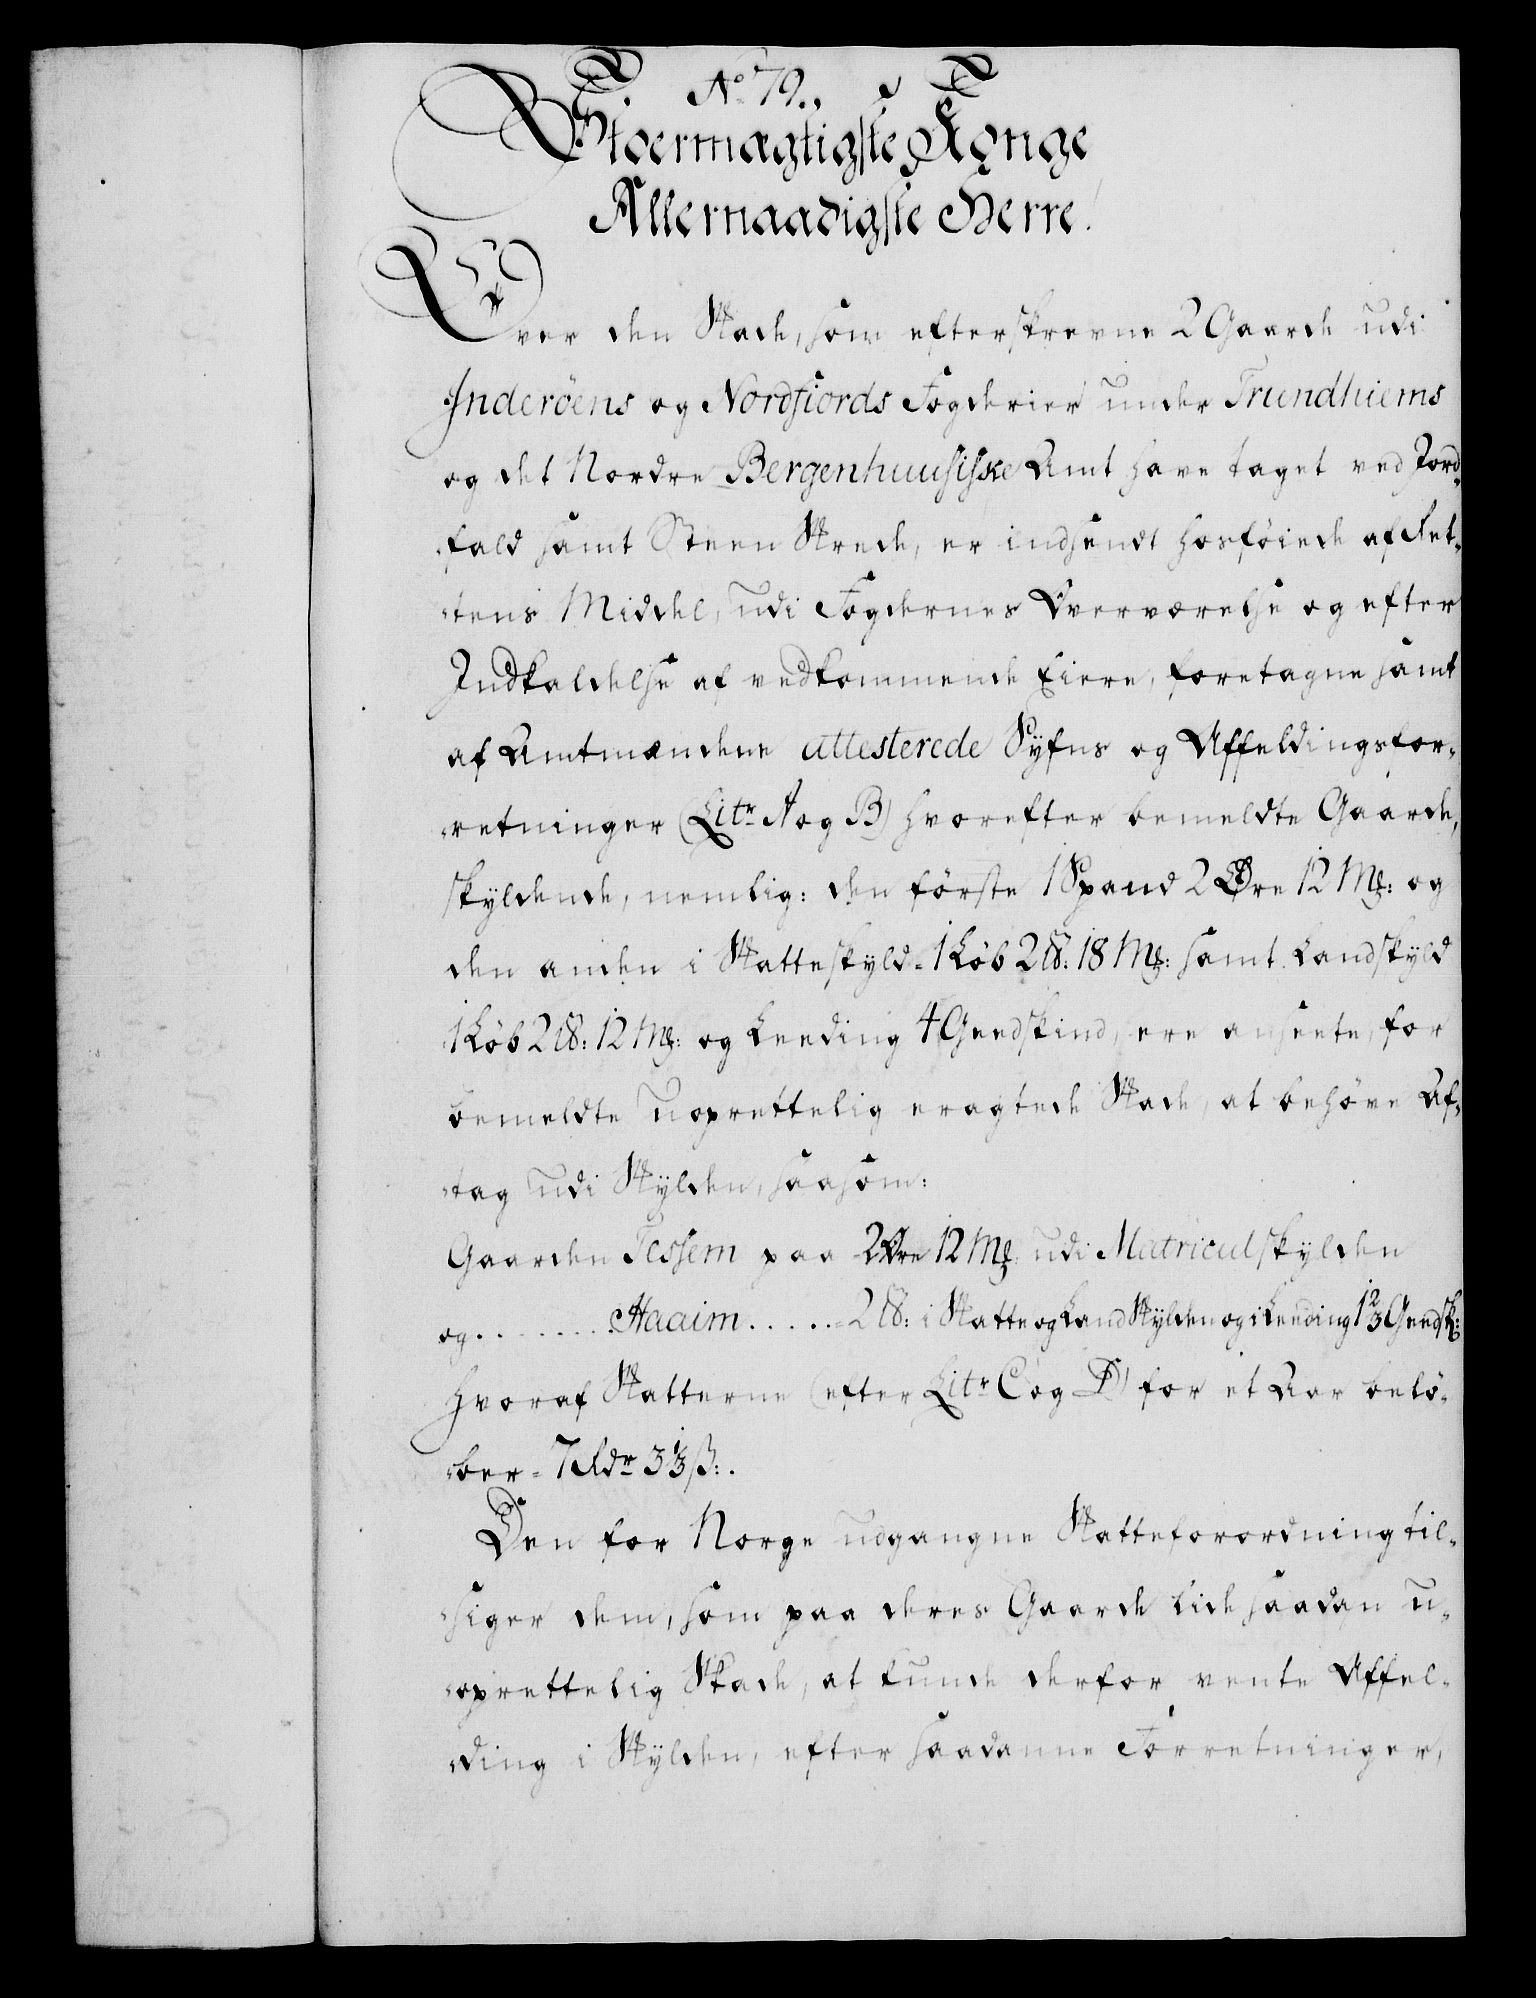 No 79.
Stoermægtigste Konge
Allernaadigste Herre!
Over den Skade, som efterskrevne 2 Gaarde udi
Inderöens og Nordfiords Fogderier under Trundhiems
og det Nordre Bergenhuusiske Amt have taget ved Jord-
fald samt Steen Skrede, er indsendt hosföiede af Ret-
tens Middel, udi Fogdernes Overværelse og efter
Indkaldelse af vedkommende Eiere, foretagne samt
af Amtmændene attesterede Syfns og Affeldingsfor-
retninger (Litr A og B) hvorefter bemeldte Gaarde,
skyldende, nemlig: den förste 1 Spand 2 Øre 12 Mk: og
den anden i Skatteskyld - 1 Løb 2 ℔: 18 Mk: samt Landskyld
1 Løb 2 ℔: 12 Mk: og Leeding 4 Geedskind, ere anseete, for
bemeldte uoprettelig eragtede Skade, at behöve Af-
tag udi Skylden, saasom:
Gaarden Tessem paa 2 Øre 12 Mk udi Matriculskylden
og ........ Haaim ..... - 2 ℔: i Skatte og Land Skylden og i Leeding 1 2/3 Geedsk:
hvoraf Skatterne (efter Litr C og D) for et Aar belö-
ber - 7 Rdr 3 1/3 ß:.
Den for Norge udgangne Skatteforordning til-
siger dem, som paa deres Gaarde lide saadan u-
oprettelig Skade, at kunde derfor vente Affel-
ding i Skylden, efter saadanne Forretninger,